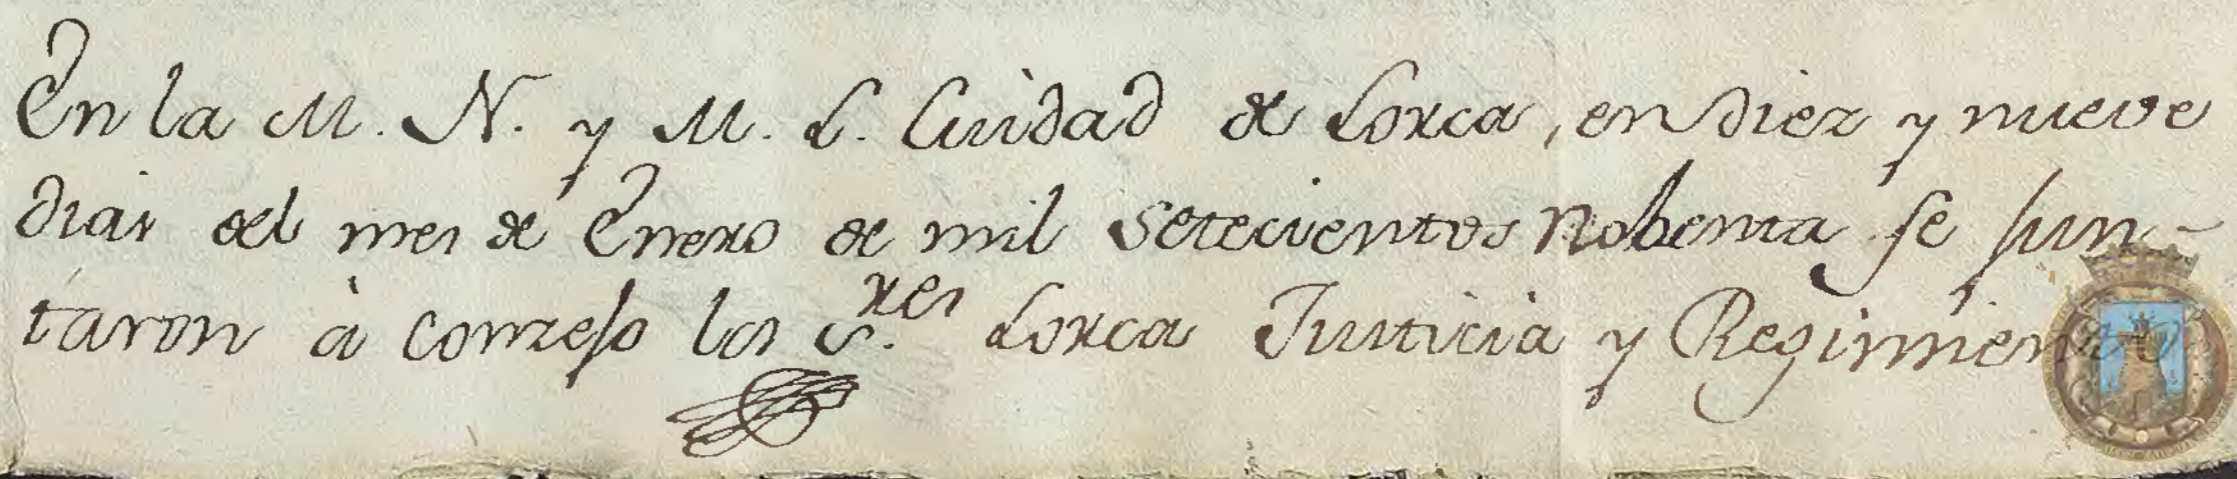 En la M. N. y M. L. Ciudad de Lorca, en diez y nueve
dias del mes de Enero de mil setecientos Nobenta se jun-
taron à conzejo los S.res Lorca Justicia y Regimiento